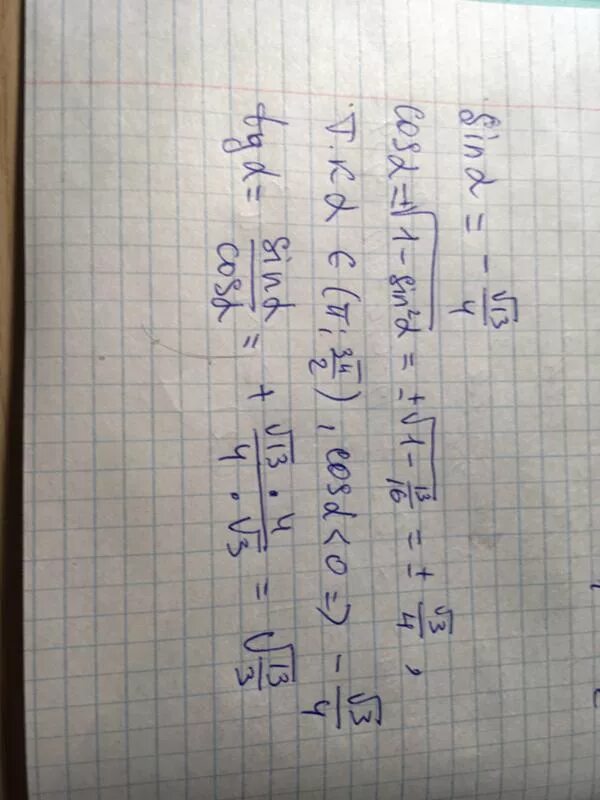 sin α = - √13/4
cos α = ±√(1 - sin²α) = ±√(1 - 13/16) = ± √3/4 ,
т.к α ∈ (π; 3π/2), cos α < 0 => - √3/4
tg α = sin α/cos α = + (√13 · 4)/(4 · √3) = √(13/3)